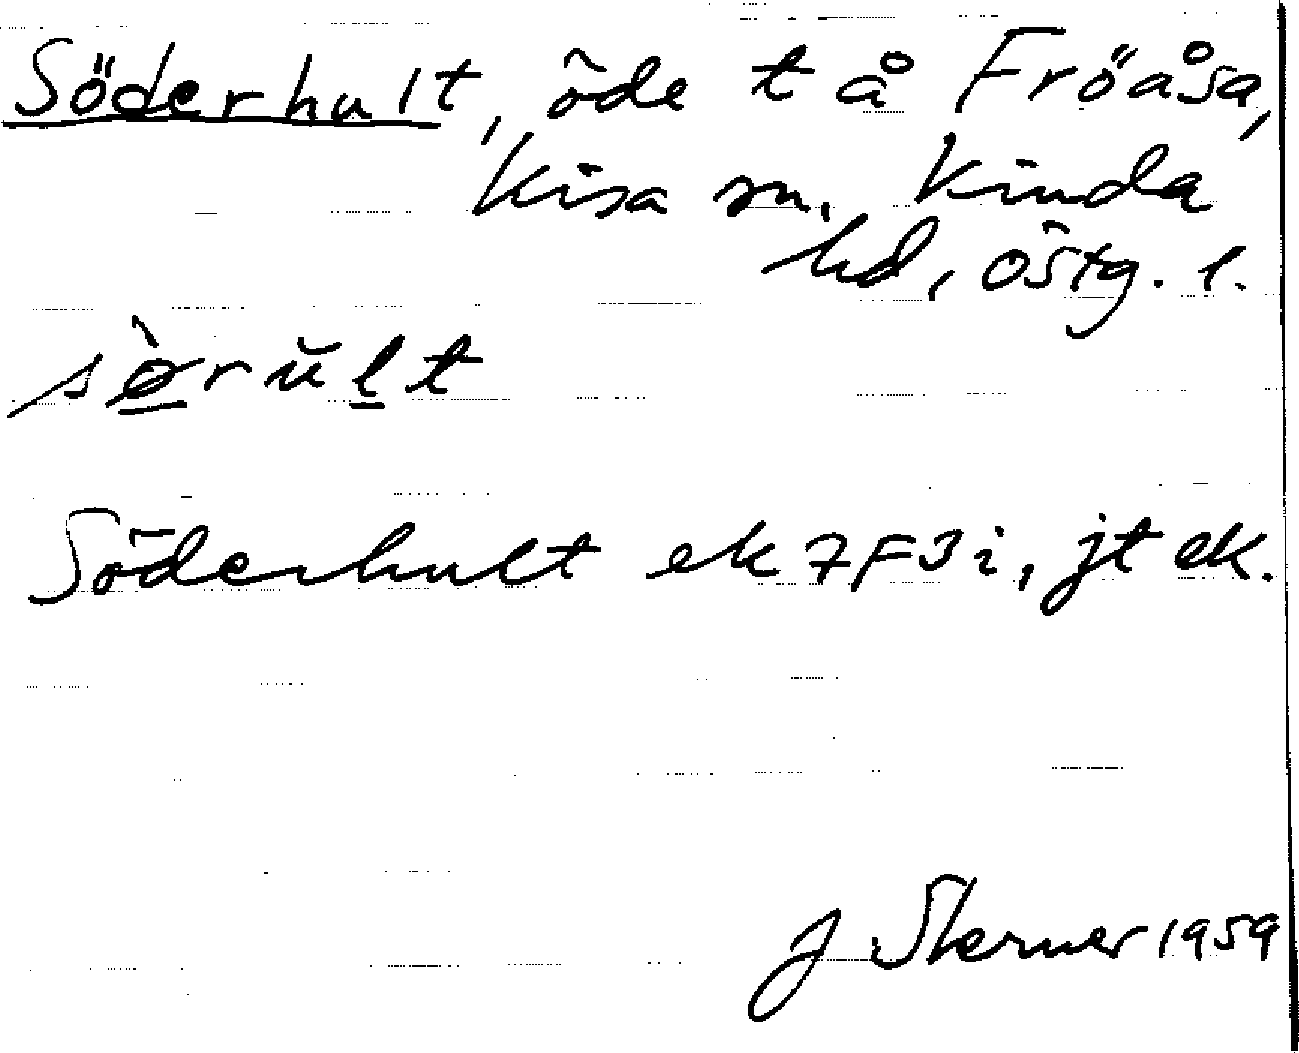 Söderhult, öde t å Fröåsa,
Kisa sn. Kinda
hd, Östg. l.
sø̀rŭlt
Söderhult ek 7F3i, jt ek.
J Sterner 1959